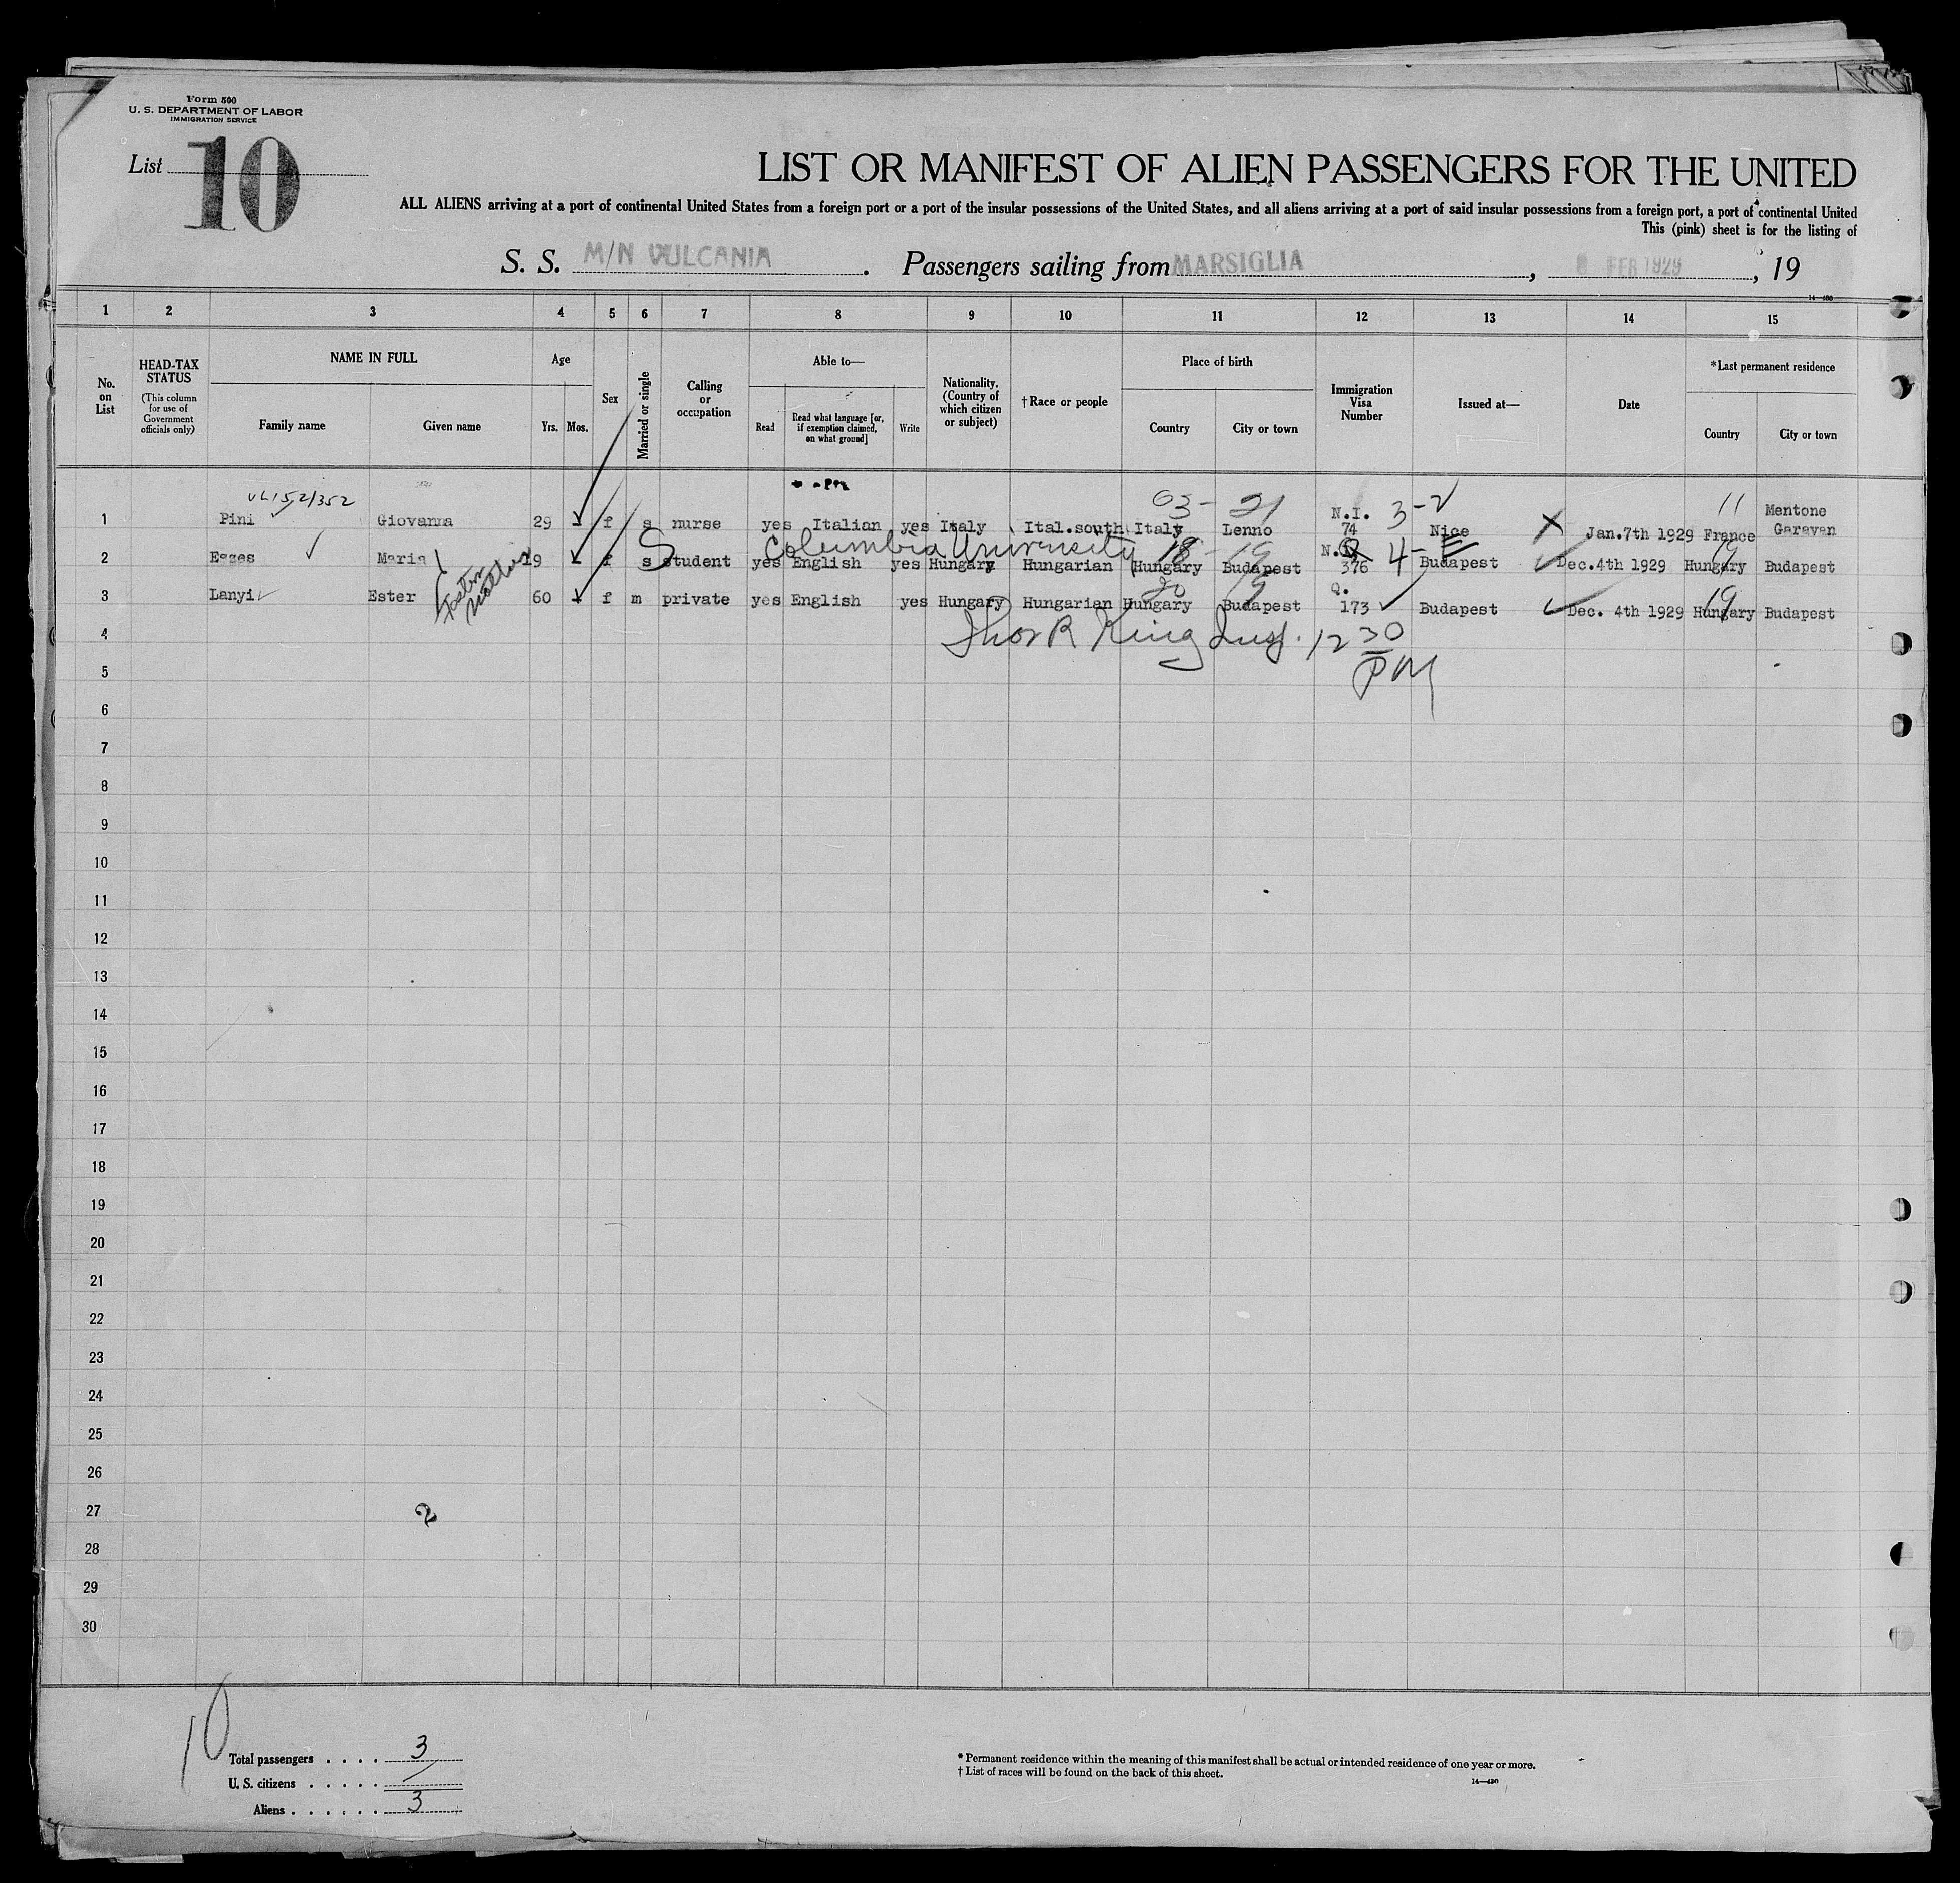 Form 500
U. S. DEPARTMENT OF LABOR
IMMIGRATION SERVICE
List 10
LIST OR MANIFEST OF ALIEN PASSENGERS FOR THE UNITED
ALL ALIENS arriving at a port of continental United States from a foreign port or a port of the insular possessions of the United States, and all aliens arriving at a port of said insular possessions from a foreign port, a port of continental United
This (pink) sheet is for the listing of
S. S. M/N VULCANIA. Passengers sailing from MARSIGLIA, FEB 1929, 19
1 2 3 4 5 6 7 8 9 10 11 12 13 14 15
No. on List
HEAD-TAX STATUS
(This column for use of Government officials only)
NAME IN FULL
Family name Given name
Age
Yrs. Mos.
Sex
Married or single
Calling or occupation
Able to—
Read Read what language [or, if exemption claimed, on what ground] Write
Nationality. (Country of which citizen or subject)
†Race or people
Place of birth
Country City or town
Immigration Visa Number
Issued at—
Date
*Last permanent residence
Country City or town
03- 21 N.I. 3-2 11 Mentone
1 Pini Giovanna 29 f s nurse yes Italian yes Italy Ital.south Italy Lenno 74 Nice Jan.7th 1929 France Garavan
Columbia University 18- 19 4- 19
2 Eszes Maria 19 f s Student yes English yes Hungary Hungarian Hungary Budapest 376 Budapest Dec.4th 1929 Hungary Budapest
Foster Mother
20 19 Q. 19
3 Lanyi Ester 60 f m private yes English yes Hungary Hungarian Hungary Budapest 173 Budapest Dec. 4th 1929 Hungary Budapest
4 Thos R King Insp. 12 30
PM
5
6
7
8
9
10
11
12
13
14
15
16
17
18
19
20
21
22
23
24
25
26
27 2
28
29
30
10
Total passengers . . . . 3
U. S. citizens . . . . .
Aliens . . . . . . 3
* Permanent residence within the meaning of this manifest shall be actual or intended residence of one year or more.
† List of races will be found on the back of this sheet.